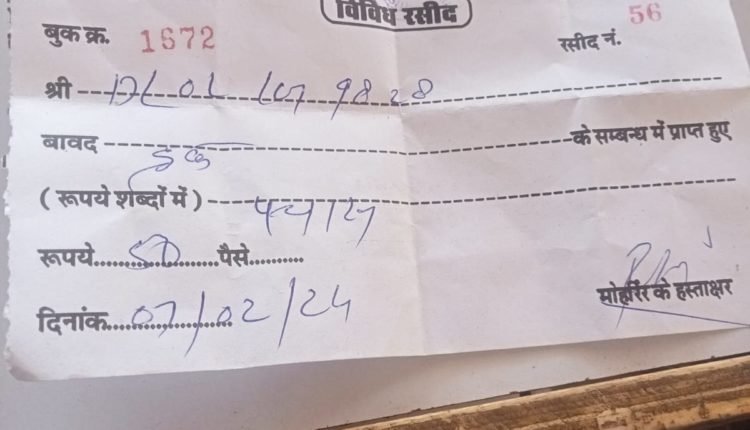 विविध रसीद
बुक क्र. 1672 रसीद नं. 56
श्री DL 01 9828
बावद के सम्बन्ध में प्राप्त हुए
( रूपये शब्दों में ) पचास
रूपये 50 पैसे
दिनांक 07/02/24
मोहर्रिर के हस्ताक्षर